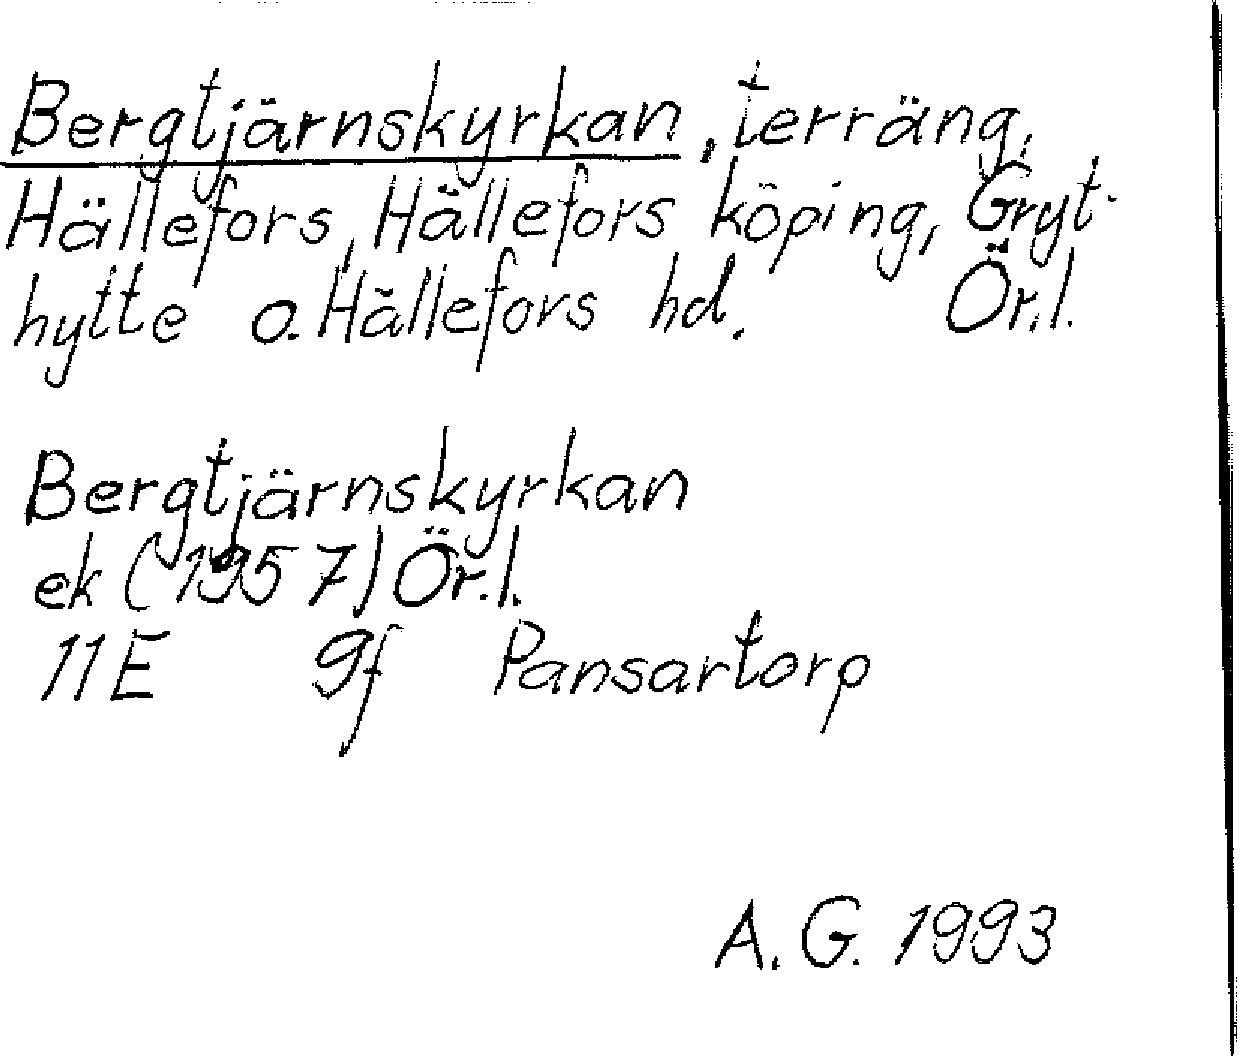 Bergtjärnskyrkan, terräng,
Hällefors, Hällefors köping, Gryt-
hytte o. Hällefors hd. Ör.l.
Bergtjärnskyrkan
ek (1957) Ör.l.
11E 9f Pansartorp
A. G. 1993